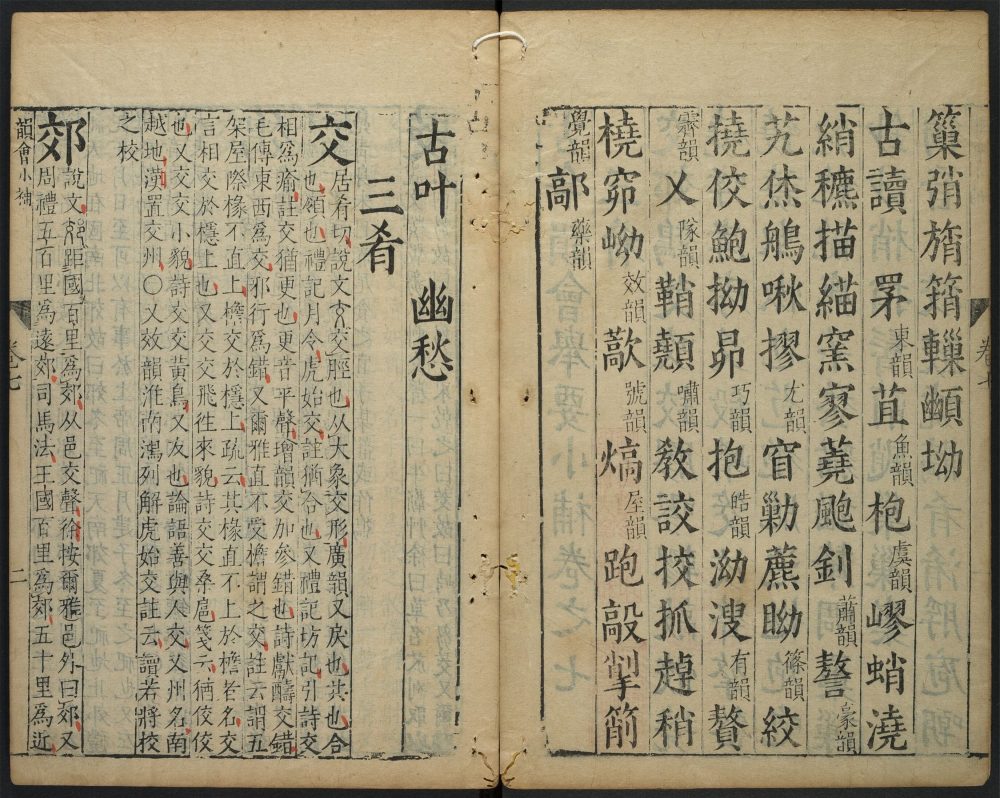 窼弰旓筲轈顤坳
古讀 罞東韻苴魚韻枹虞韻嵺蛸澆
綃穮描緢窯寥蕘颮釗蕭韻謷豪韻
艽烋鵃啾摎尤韻窅勦藨眑篠韻絞
撓佼鮑拗昴巧韻抱皓韻泑溲有韻贅
霽韻乂隊韻鞘顤嘯韻敎詨挍抓趠稍
橈窌岰效韻歊號韻熇屋韻跑敲掣箾
覺韻鄗藥韻
卷七
古叶 幽愁
三肴
交居肴切說文交脛也从大象交形廣韻又戾也共也合
也領也禮記月令虎始交註猶合也又禮記坊記引詩交
相爲瘉註交猶更也更音平聲增韻交加參錯也詩獻醻交錯
毛傳東西爲交邪行爲錯又爾雅直不受檐謂之交註云謂五
架屋際椽不直上檐交於檼上疏云其椽直不上於檐者名交
言相交於檼上也又交交飛徃來貌詩交交桑扈箋云猶佼佼
也又交交小貌詩交交黃鳥又友也論語善與人交又州名南
越地漢置交州〇又效韻淮南鴻列解虎始交註云讀若將校
之校
郊說文距國百里爲郊从邑交聲徐按爾雅邑外曰郊又
周禮五百里爲遠郊司馬法王國百里爲郊五十里爲近
韻會小補
卷七
二